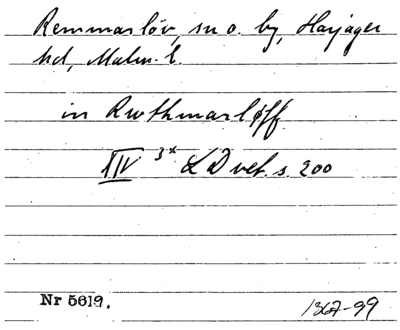 Remmarlöv, sn o. by, Harjager
hd, Malm. l.
in Rwthmarløff
XIV 3x LD vet. s. 200
Nr 5619.
1367-99